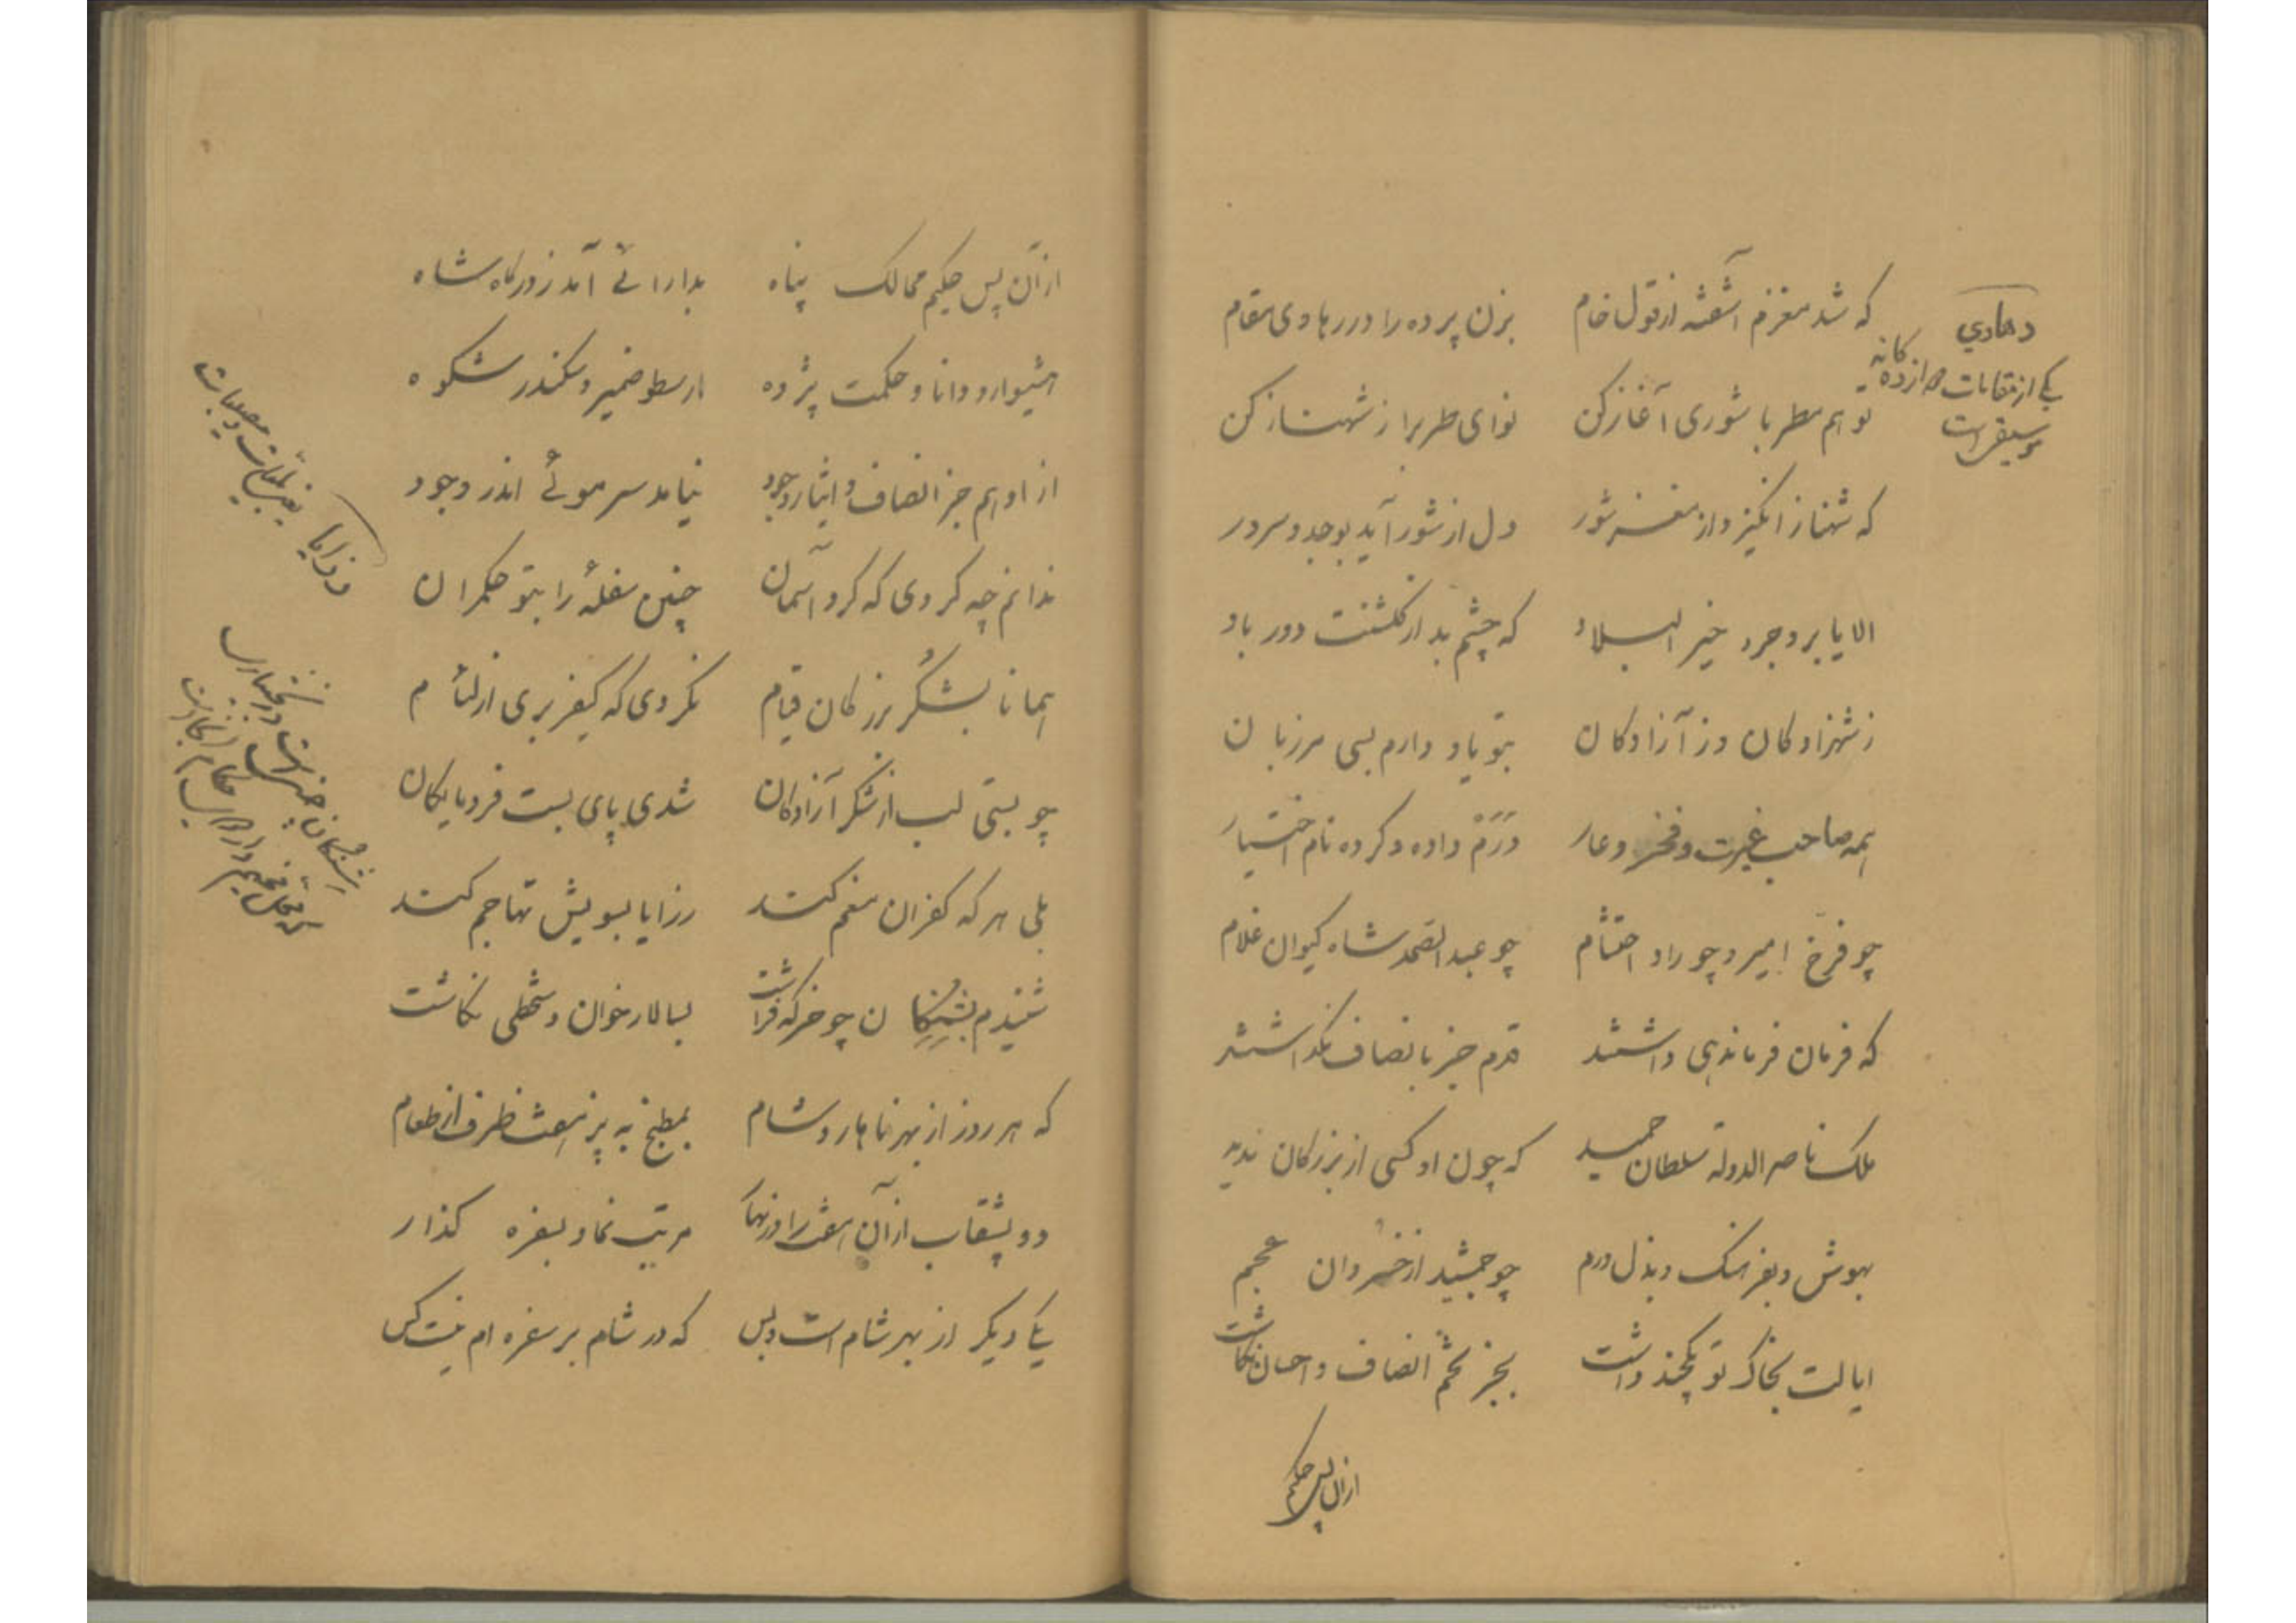 که شد مغزم آشفته از قول خام بزن پرده را در رهاوی مقام
تو هم مطربا شوری آغاز کن نوای طرب را ز شهناز کن
که شهناز انگیزد از مغز شور دل از شور آید بوجد و سرور
الا یا بروجرد خیر البلاد که چشم بد از گلشنت دور باد
ز شهزادکان وز آزادکان بتو یاد دارم بسی مرزبان
همه صاحب غیرت و فخر و عار درم داده و کرده نام اختیار
چو فرخ امیر و چو راد احتشام چو عبدالصمد شاه کیوان غلام
که فرمان فرماندهی داشتند قدم جز بانصاف نگذاشتند
ملک ناصر الدوله سلطان حمید که چون او کسی از بزرکان ندید
بهوش و بفرهنک و بذل درم چو جمشید از خسروان عجم
ایالت بخاک تو یکچند داشت بجز تخم انصاف و احسان نکاشت
ازان پس حکیم
رهاوي
یکی از مقامات دوازده کانه
موسیقی است
ازآن پس حکیم ممالک پناه بدارائی آمد ز درکاه شاه
هشیوار و دانا و حکمت پژوه ارسطو ضمیر و سکندر شکوه
از او هم جز انصاف و ایثار و جود نیامد سر موئی اندر وجود
ندانم چه کردی که کرد آسمان چنین سفلهٔ را بتو حکمران
همانا بشکر بزرکان قیام نکردی که کیفر بری از لئام
چو بستی لب از شکر آزادکان شدی پای بست فرومایکان
بلی هر که کفران منعم کند رزایا بسویش تهاجم کند
شنیدم بشبنکان چو خرکه فراشت بسالار خوان دستخطی نکاشت
که هر روز از بهر ناهار و شام بمطبخ به پز هفت ظرف از طعام
دو بشقاب از آن هفت را در نهار مرتب نما و بسفره کذار
یکی دیکر از بهر شام است و بس که در شام بر سفره ام نیست کس
رزایا یعنی بلیات و مصیبات